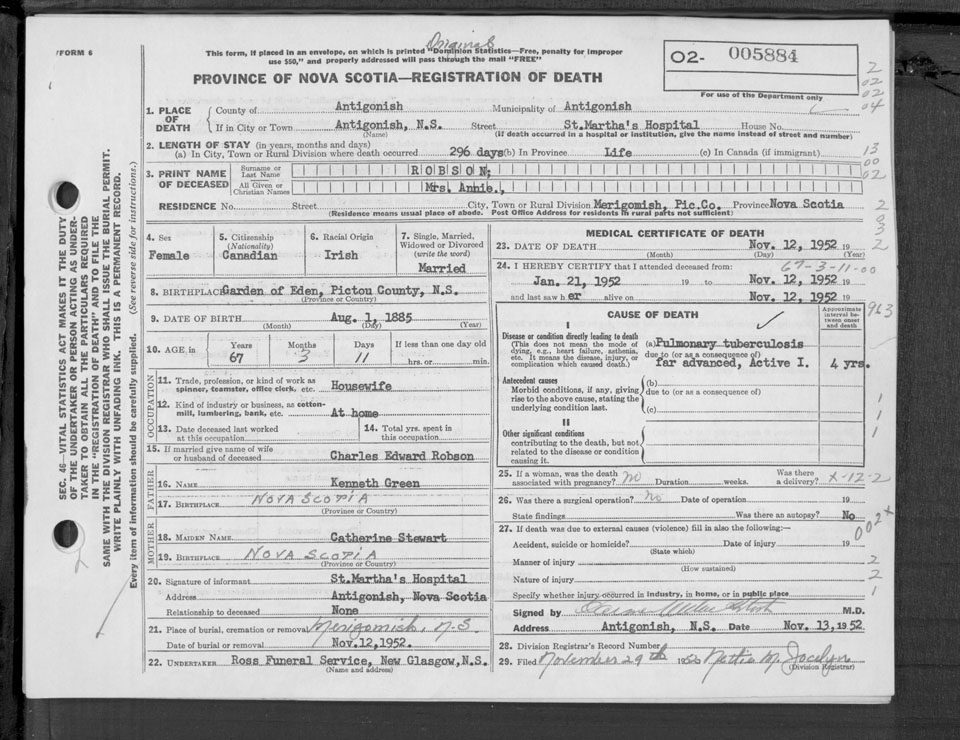 FORM 6
Original
This form, if placed in an envelope, on which is printed "Dominion Statistics—Free, penalty for improper
use $50," and properly addressed will pass through the mail "FREE"
PROVINCE OF NOVA SCOTIA—REGISTRATION OF DEATH
02- 005884
For use of the Department only
1. PLACE OF DEATH
County of Antigonish Municipality of Antigonish
If in City or Town Antigonish, N.S. Street St.Martha's Hospital House No.
(Name) (If death occurred in a hospital or institution, give the name instead of street and number)
2. LENGTH OF STAY (in years, months and days)
(a) In City, Town or Rural Division where death occurred 296 days (b) In Province Life (c) In Canada (if immigrant)
3. PRINT NAME OF DECEASED
Surname or Last Name ROBSON,
All Given or Christian Names Mrs. Annie.,
RESIDENCE No. Street City, Town or Rural Division Merigomish, Pic.Co. Province Nova Scotia
(Residence means usual place of abode. Post Office Address for residents in rural parts not sufficient)
2
02
02
04
13
00
02
2
0
3
2
SEC. 46—VITAL STATISTICS ACT MAKES IT THE DUTY
OF THE UNDERTAKER OR PERSON ACTING AS UNDER-
TAKER TO OBTAIN ALL THE PARTICULARS REQUIRED
IN THE "REGISTRATION OF DEATH" AND TO FILE THE
SAME WITH THE DIVISION REGISTRAR WHO SHALL ISSUE THE BURIAL PERMIT.
WRITE PLAINLY WITH UNFADING INK. THIS IS A PERMANENT RECORD.
Every item of information should be carefully supplied. (See reverse side for instructions.)
4. Sex
Female
5. Citizenship
(Nationality)
Canadian
6. Racial Origin
Irish
7. Single, Married,
Widowed or Divorced
(write the word)
Married
8. BIRTHPLACE Garden of Eden, Pictou County, N.S.
(Province or Country)
9. DATE OF BIRTH Aug. 1, 1885
(Month) (Day) (Year)
10. AGE in Years Months Days If less than one day old
67 3 11 hrs. or min.
OCCUPATION
11. Trade, profession, or kind of work as
spinner, teamster, office clerk, etc. Housewife
12. Kind of industry or business, as cotton-
mill, lumbering, bank, etc. At home
13. Date deceased last worked
at this occupation
14. Total yrs. spent in
this occupation
15. If married give name of wife
or husband of deceased Charles Edward Robson
FATHER
16. NAME Kenneth Green
17. BIRTHPLACE NOVA SCOPIA
(Province or Country)
MOTHER
18. MAIDEN NAME Catherine Stewart
19. BIRTHPLACE NOVA SCOPIA
(Province or Country)
20. Signature of informant St.Martha's Hospital
Address Antigonish, Nova Scotia
Relationship to deceased None
21. Place of burial, cremation or removal Merigomish, N.S.
Date of burial or removal Nov.12,1952.
22. UNDERTAKER Ross Funeral Service, New Glasgow,N.S.
(Name and address)
MEDICAL CERTIFICATE OF DEATH
23. DATE OF DEATH Nov. 12, 1952 19
(Month) (Day) (Year)
67-3-11-00
24. I HEREBY CERTIFY that I attended deceased from:
Jan. 21, 1952 19 to Nov. 12, 1952 19
and last saw h er alive on Nov. 12, 1952 19
CAUSE OF DEATH
Approximate interval between onset and death
963
I
Disease or condition directly leading to death
(This does not mean the mode of
dying, e.g., heart failure, asthenia,
etc. It means the disease, injury, or
complication which caused death.)
(a) Pulmonary tuberculosis
due to (or as a consequence of)
far advanced, Active I. 4 yrs.
Antecedent causes
Morbid conditions, if any, giving
rise to the above cause, stating the
underlying condition last.
(b)
due to (or as a consequence of)
(c)
1
1
1
II
Other significant conditions
contributing to the death, but not
related to the disease or condition
causing it.
25. If a woman, was the death
associated with pregnancy? No Duration weeks. Was there
a delivery? X-12-2
26. Was there a surgical operation? No Date of operation 19
State findings Was there an autopsy? No
27. If death was due to external causes (violence) fill in also the following:—
002x
Accident, suicide or homicide? Date of injury 19
(State which)
Manner of injury 2
(How sustained)
Nature of injury 2
Specify whether injury occurred in industry, in home, or in public place 1
Signed by M.D.
Address Antigonish, N.S. Date Nov. 13,1952
28. Division Registrar's Record Number
29. Filed November 29th 1952 Nettie M. Jocelyn
(Division Registrar)